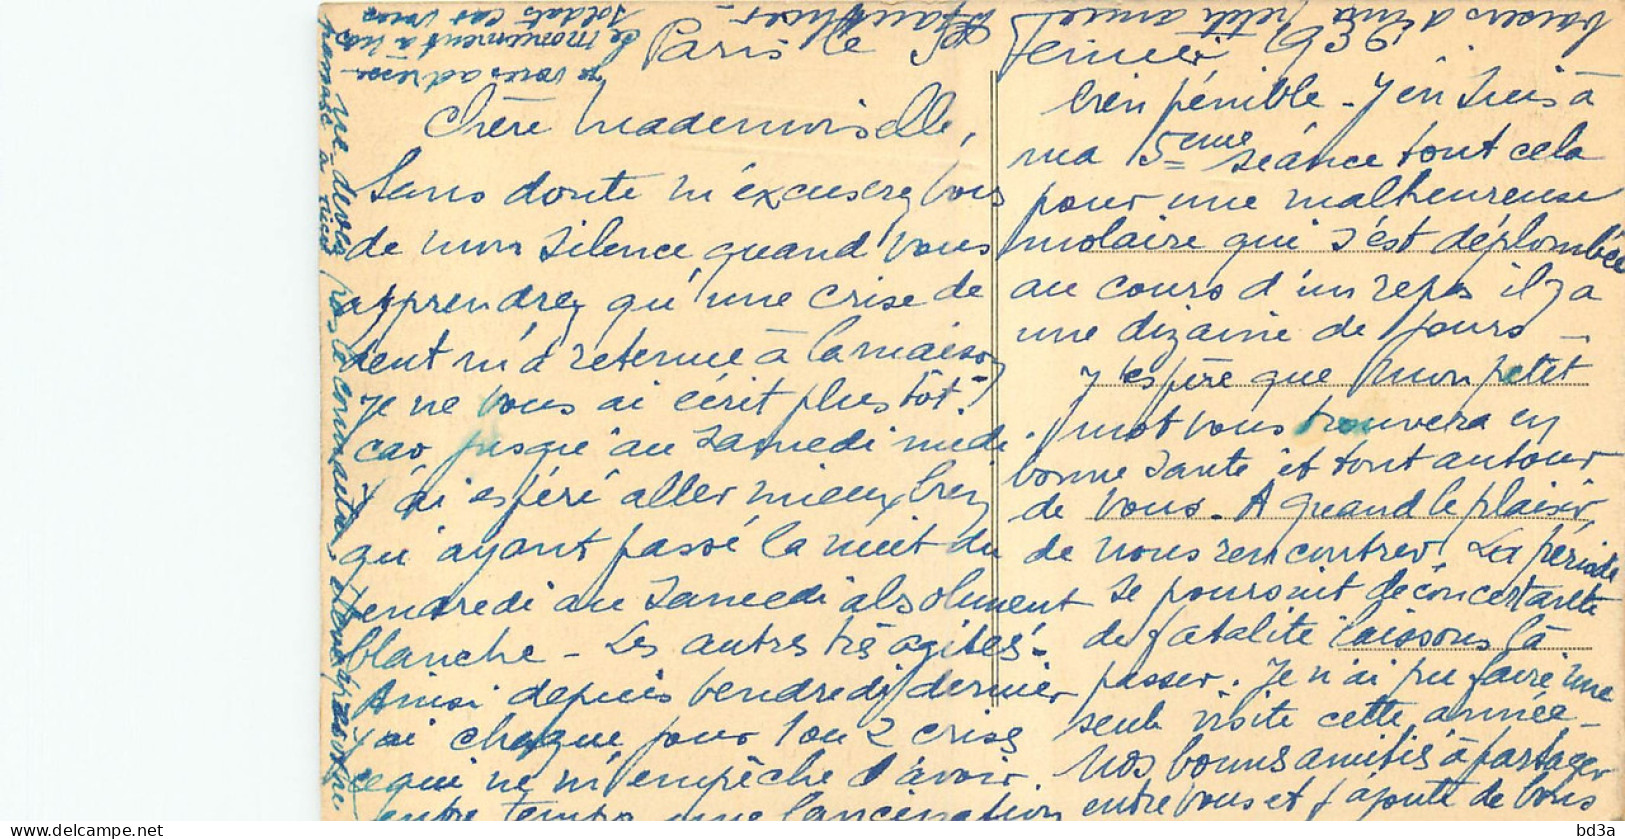 Paris le 5 Février 1936
Chère Mademoiselle,
Sans doute m'excuserez vous
de mon silence quand vous
apprendrez qu'une crise de
dent m'a retenue à la maison
je ne vous ai écrit plus tôt !
car jusqu'au Samedi midi
J'ai espéré aller mieux bien
qu'ayant passé la nuit du
Vendredi au Samedi absolument
blanche - Les autres très agités -
Ainsi depuis Vendredi dernier
j'ai chaque jour 1 ou 2 crises
ce qui ne m'empêche d'avoir
entre temps une lancination
bien pénible - J'en suis à
ma 5ème séance tout cela
pour une malheureuse
molaire qui s'est déplombée
au cours d'un repas il y a
une dizaine de jours -
J'espère que mon petit
mot vous trouvera en
bonne santé et tout autour
de vous - A quand le plaisir
de nous rencontrer. La période
se poursuit déconcertante
de fatalité laissons là
passer. Je n'ai pu faire une
seule visite cette année -
Nos bonnes amitiés à partager
entre vous et j'ajoute de bons
baisers d'une petite amie
ce monument à nos
soldats car vous
je vous adresse
ne devez pas le connaître,